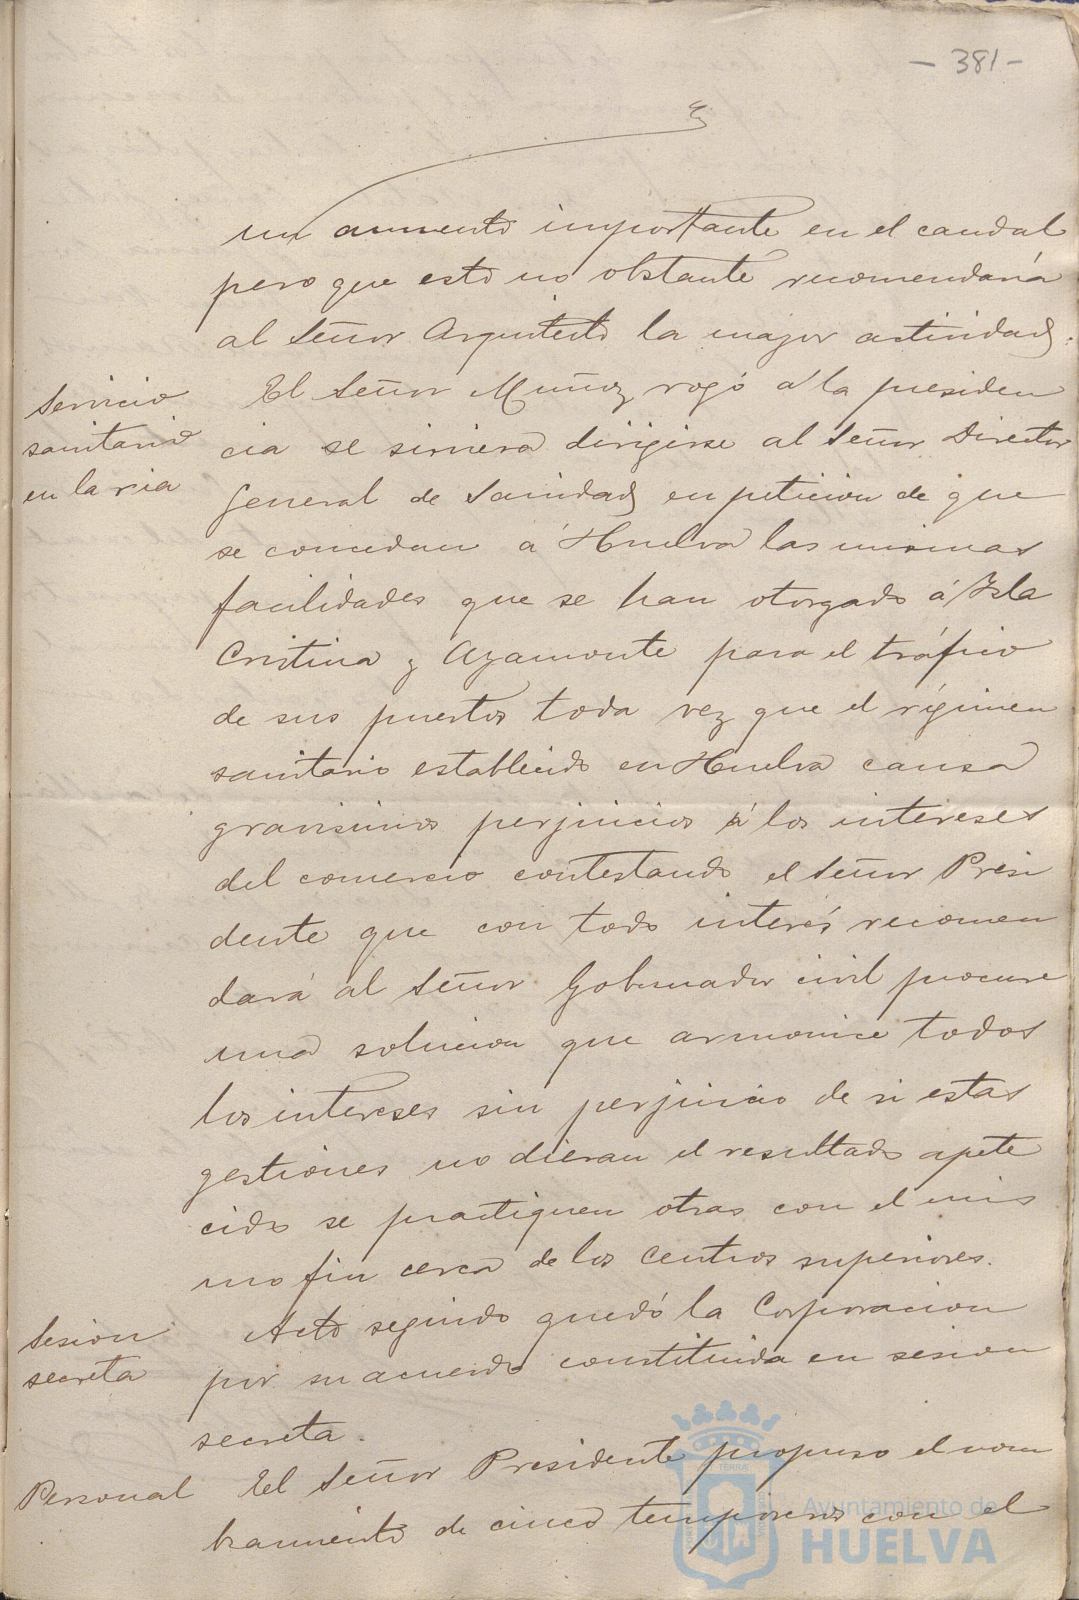 - 381 -
un aumento importante en el caudal
pero que esto no obstante recomendaría
al Señor Arquitecto la mayor actividad.
Servicio
sanitario
en la ria
El Señor Muñoz rogó á la presiden
cia se sirviera dirigirse al Señor Director
General de Sanidad en peticion de que
se concedan á Huelva las mismas
facilidades que se han otorgado á Isla
Cristina y Ayamonte para el tráfico
de sus puertos toda vez que el régimen
sanitario establecido en Huelva causa
gravisimos perjuicios á los intereses
del comercio contestando el Señor Presi
dente que con todo interés recomen
dará al Señor Gobernador civil procure
una solucion que armonice todos
los intereses sin perjuicio de si estas
gestiones no dieran el resultado apete
cido se practiquen otras con el mis
mo fin cerca de los Centros superiores.
Sesion
secreta
Acto seguido quedó la Corporacion
por su acuerdo constituida en sesion
secreta.
Personal
El Señor Presidente propuso el nom
bramiento de cinco temporeros con el
Ayuntamiento de
HUELVA